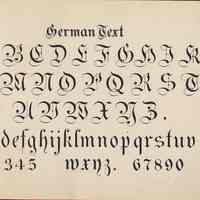 German Text
B C D E F G H I K
M N O P Q R S T
U V W X Y Z .
defghijklmnopqrstuv
345 wxyz. 67890